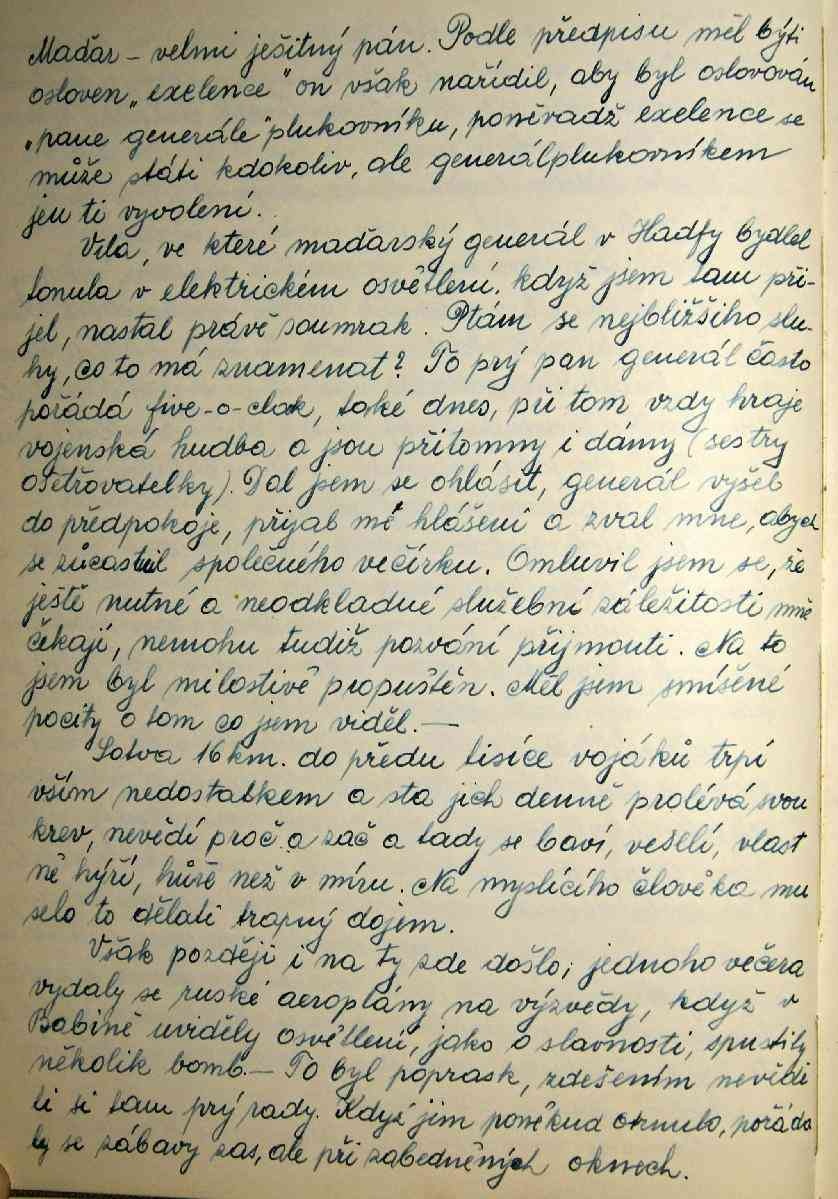 Maďar – velmi ješitný pán. Podle předpisu měl býti
osloven „exelence" on však nařídil, aby byl oslovován
„pane generále" plukovníku, poněvadž exelence se
může státi kdokoliv, ale generálplukovníkem
jen ti vyvolení.
Vila, ve které maďarský generál v Hadfy bydlel
tonula v elektrickém osvětlení. když jsem tam při-
jel, nastal právě soumrak. Ptám se nejbližšího slu-
hy, co to má znamenat? To prý pan generál často
pořádá five-o-clok, také dnes, při tom vzdy hraje
vojenská hudba a jsou přítomny i dámy (sestry
ošetřovatelky). Dal jsem se ohlásit, generál vyšel
do předpokoje, přijal mé hlášení a zval mne, abych
se zúcastnil společného večírku. Omluvil jsem se, že
ještě nutné a neodkladné služební záležitosti mně
čekají, nemohu tudiž pozvání přijmouti. Na to
jsem byl milostivě propuštěn. Měl jsem smíšené
pocity o tom co jsem viděl. —
Sotva 16 km. do předu tisíce vojáků trpí
vším nedostatkem a sta jich denně prolévá svou
krev, nevědí proč a zač a tady se baví, veselí, vlast
ně hýří, hůře než v míru. Na myslícího člověka mu
selo to dělati trapný dojem.
Však později i na ty zde došlo; jednoho večera
vydaly se ruské aeroplány na výzvědy, když v
Babině uviděly osvětlení, jako o slavnosti, spustily
několik bomb. — To byl poprask, zdešením nevědi
li si tam prý rady. Když jim poněkud otrnulo, pořáda
ly se zábavy zas, ale při zabedněných oknech.